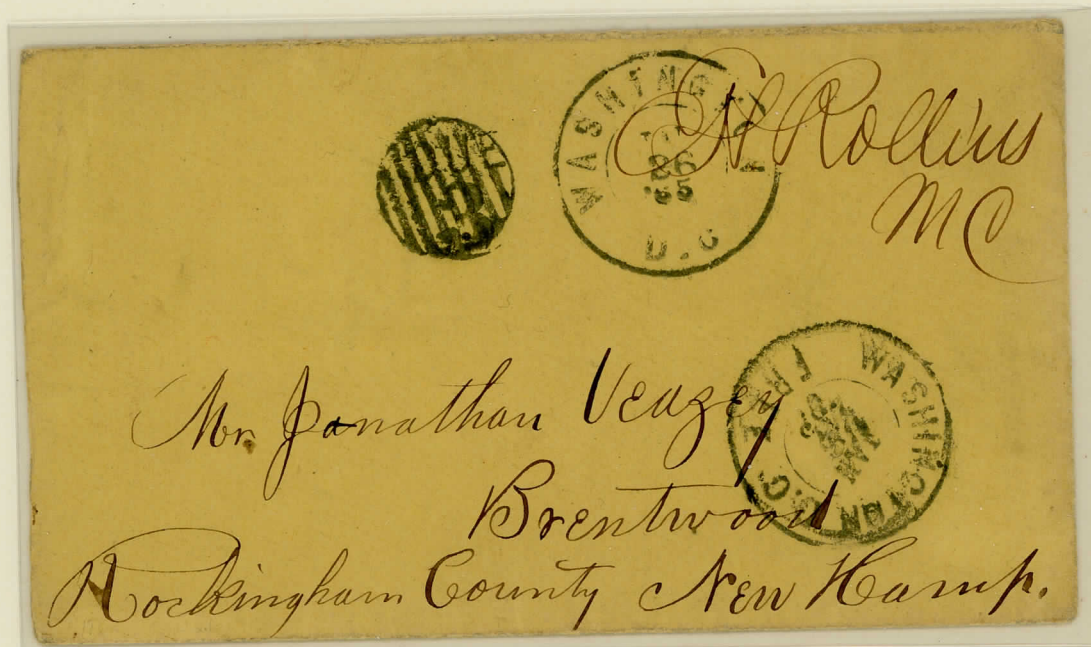 WASHINGTON
26
'65
D.C
EH Rollins
MC
WASHINGTON D.C. FREE
JAN
26
Mr. Jonathan Veazey
Brentwood
Rockingham County New Hamp.